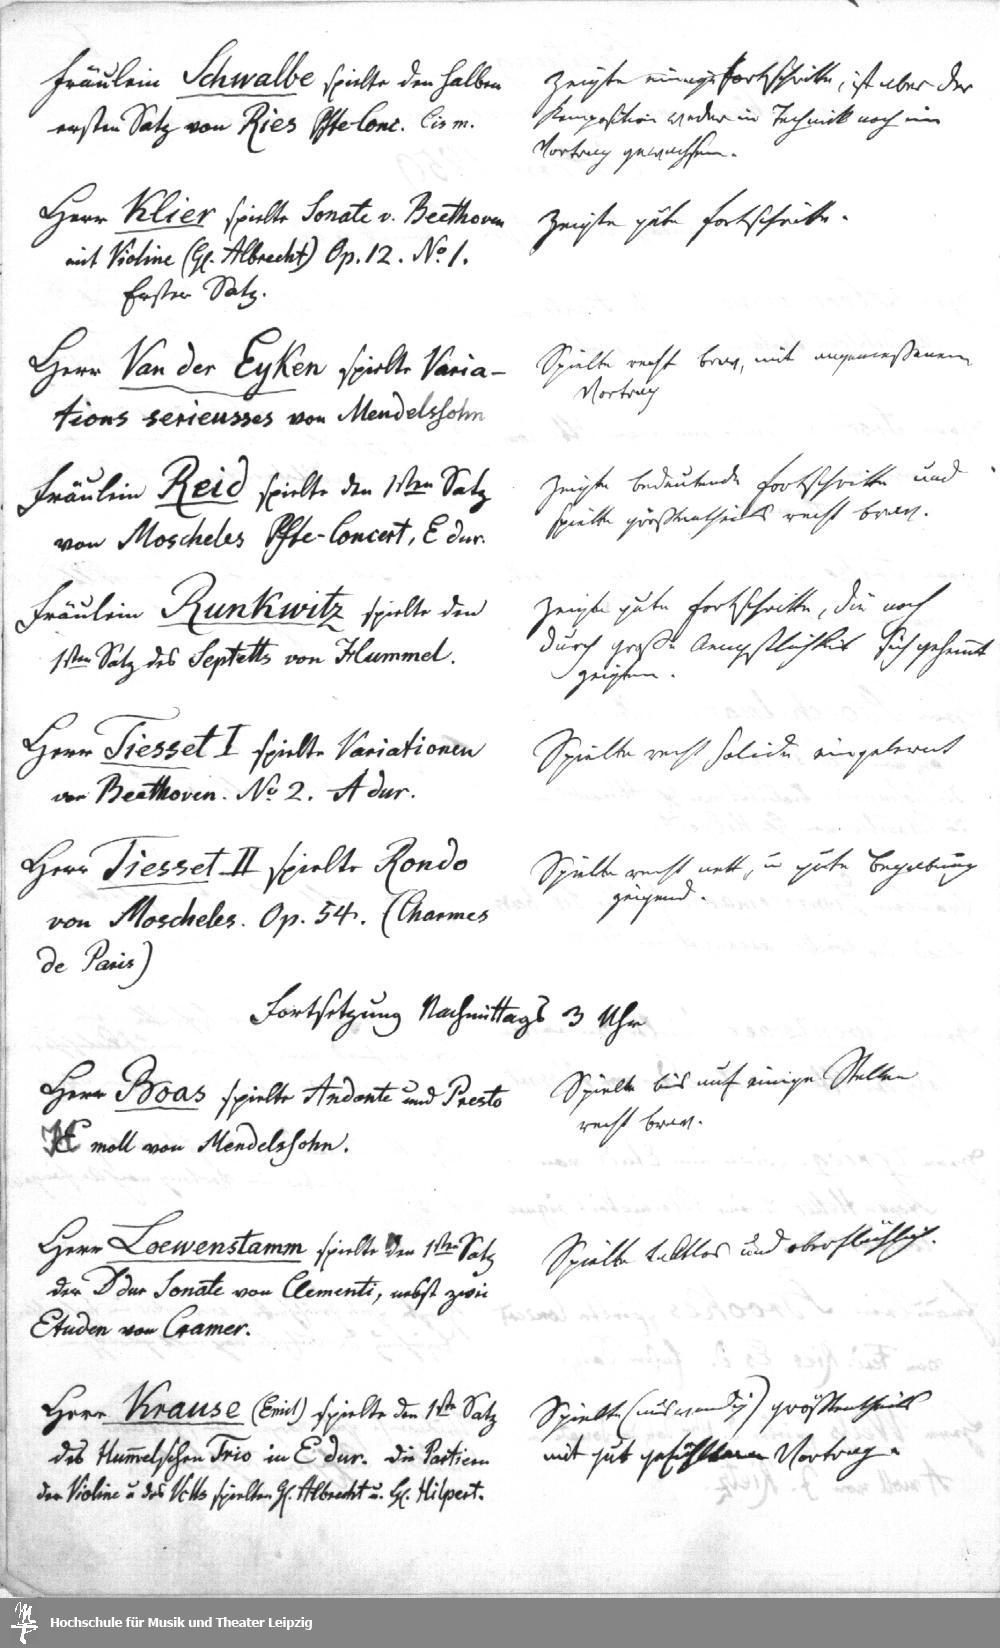 Fräulein Schwalbe spielte den halben
ersten Satz von Ries Pfte-Conc. Cis m.
zeigte einige Fortschritte, ist aber der
Komposition weder in Technik noch im
Vortrag gewachsen.
Herr Klier spielte Sonate v. Beethoven
mit Violine (H. Albrecht) Op. 12. No 1.
Erster Satz.
zeigte gute Fortschritte.
Herr Van der Eyken spielte Varia-
tions serieusses von Mendelssohn
Spielte recht brav, mit angemessenem
Vortrag
Fräulein Reid spielte den 1sten Satz
von Moscheles Pfte-Concert, E dur.
zeigte bedeutende Fortschritte und
spielte größtentheils recht brav.
Fräulein Runkwitz spielte den
1sten Satz des Septetts von Hummel.
zeigte gute Fortschritte, die noch
durch große Aengstlichkeit sich gehemmt
zeigten.
Herr Tiesset I spielte Variationen
von Beethoven. No 2. A dur.
Spielte recht solide eingelernt
Herr Tiesset II spielte Rondo
von Moscheles. Op. 54. (Charmes
de Paris)
Spielte recht nett, u gute Begabung
zeigend.
Fortsetzung Nachmittags 3 Uhr
Herr Boas spielte Andante und Presto
E moll von Mendelssohn.
Spielte bis auf einige Stellen
recht brav.
Herr Loewenstamm spielte den 1sten Satz
der D dur Sonate von Clementi, nebst zwei
Etuden von Cramer.
Spielte taktlos und oberflächlich.
Herr Krause (Emil) spielte den 1sten Satz
des Hummelschen Trio in E dur. Die Partieen
der Violine u des Vclls spielten H. Albrecht u. H. Hilpert.
Spielte (auswendig) größtentheils
mit gut gefühltem Vortrag.
Hochschule für Musik und Theater Leipzig